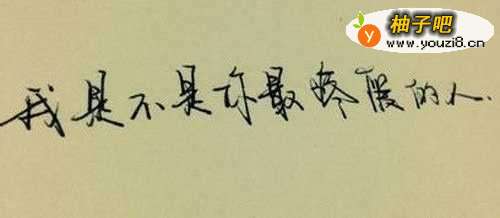 柚子吧
www.youzi8.cn
我是不是你最疼爱的人.